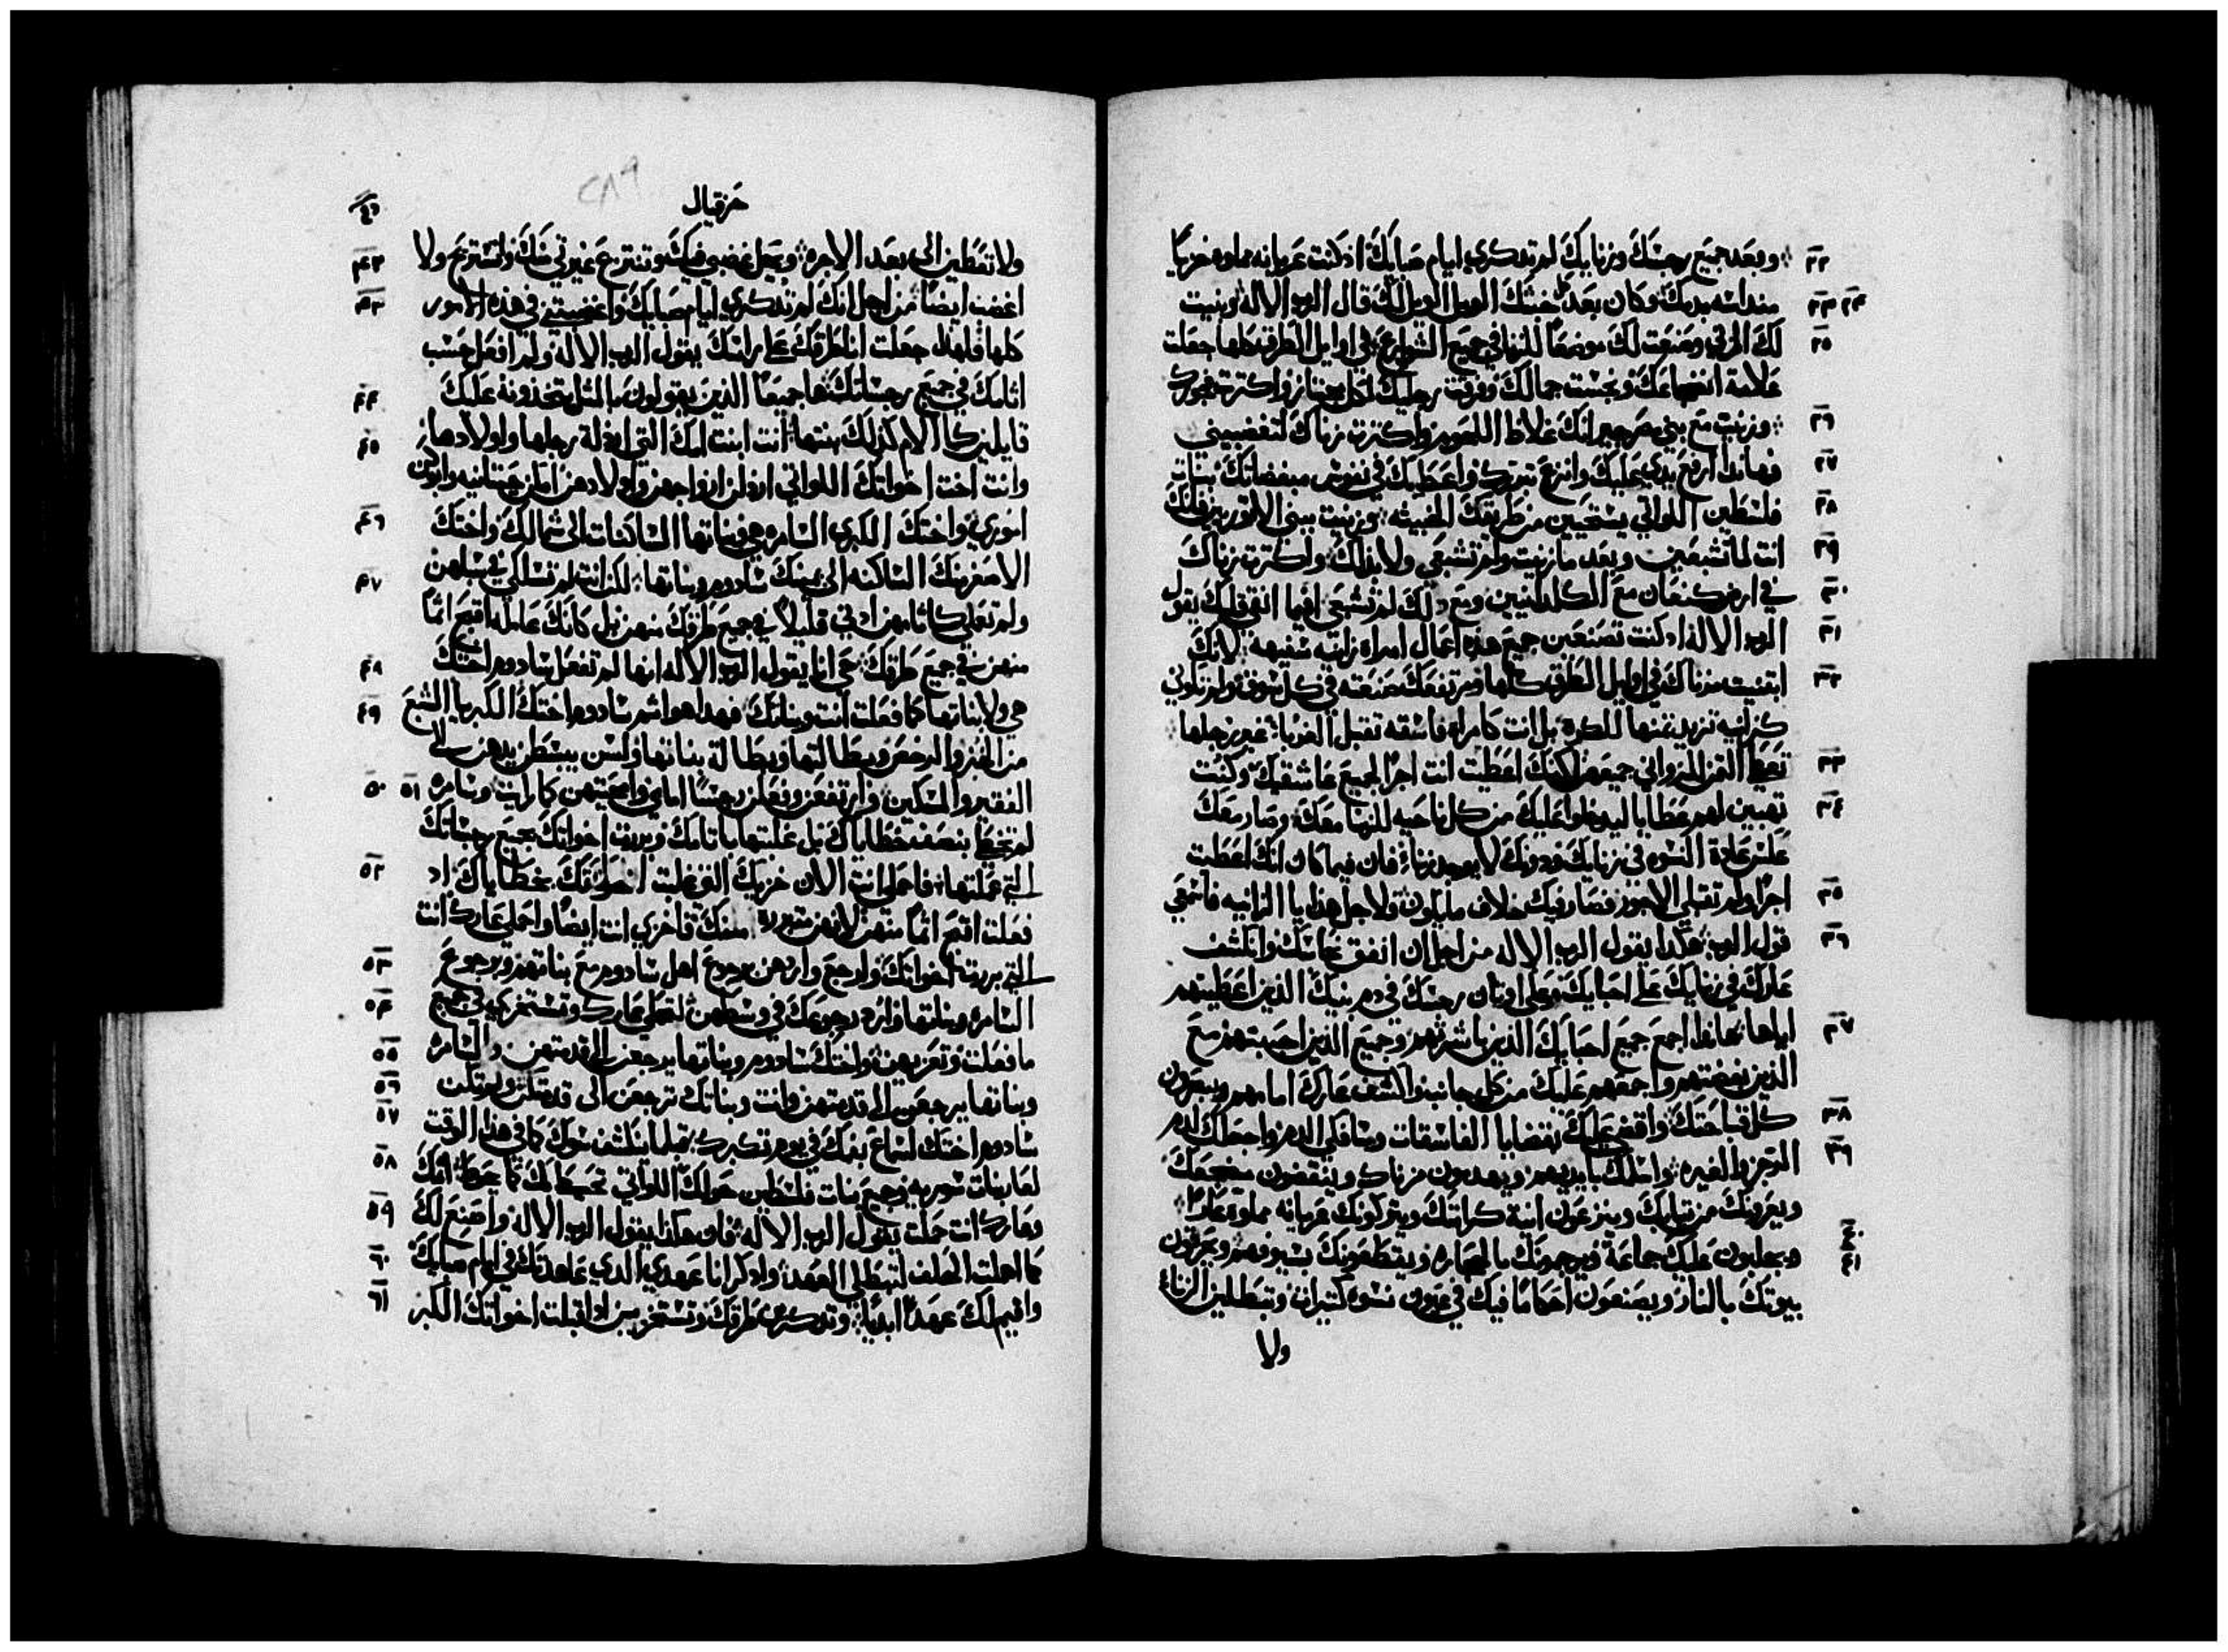 وبعد جميع رجسك وزنايك لم تدكري ايام صبايك اذ كنت عريانه مملوه خزيًا
منداسه بدمك وكان بعد خبثك الويل الويل لك قال الرب الاله وبنيت
لك المرقي وصنعت لك موضعًا للزنا في جميع الشوارع في اوايل الطرق كلها جعلت
علامة انفضاحك ونجست جمالك وفرقت رجليك لكل مجتاز واكثرت فجورك
وزنيت مع بني مصر جيرانك غلاظ اللحوم واكثرت زناك لتغضبيني
فهاندا ارفع يدي عليك وانزع تبررك واعطيك في نفوس مبغضاتك بنات
فلسطين اللواتي يستحيين من طريقك الخبيثه وزنيت ببني الاتوريين فانك
انت لما تشبعين وبعد ما زنيت ولم تشبعي ولا بذلك واكثرت زناك
في ارض كنعان مع الكلدانيين ومع دلك لم تشبعي بما انقي قلبك يقول
الرب الاله اد كنت تصنعين جميع هذه اعمال امراه زانيه سفيهه لانك
ابتنيت مزناك في اوايل الطرق كلها ومرتفعك صنعته في كل سوق ولم تكوني
كزانيه تزيد ثمنها للكره بل انت كامراه فاسقه تقبل الغربا غير رجلها
تعطا القزالزواني جميعهن لكنك اعطيت انت اجرًا لجميع عاشقيك وكنت
تهبين لهم عطايا ليدخلوا عليك من كل ناحيه للزنا معك وصار معك
عكس عادة النسوه في زنايك ودونك لا يوجد زناء فان فيما كان انك اعطيت
اجرًا ولم تقبلي الاجور فصار فيك خلاف ما يكون ولاجل هذا يا الزانيه فاسمعي
قول الرب هكدا يقول الرب الاله من اجل ان انفق نحاسك وانكشف
عارك في زنايك على احبايك وعلى اوثان رجسك في دم بنيك الذين اعطيتهم
اياها هاندا اجمع جميع احبايك الذين باشرتهم وجميع الذين احببتهم مع
الذين بغضتهم واجمعهم عليك من كل جانب واكشف عارك امامهم ويبصرون
كل قباحتك واقضي عليك بقضايا الفاسقات وسافكي الدم واجعلك لدم
الرجز والغيره واسلمك بايديهم ويهدمون مزناك وينقضون مضجعك
ويعرونك من ثيابك وينزعون انية كرامتك ويتركونك عريانه مملوه عارًا
ويجلبون عليك جماعة ويرجمونك بالحجاره ويقطعونك بسيوفهم ويحرقون
بيوتك بالنار ويصنعون احكامًا فيك في عيون نسوه كتيرات وتبطلين الزناء
ولا
حزقيال
٢٨٩
ولا تعطين الى بعد الاجره ويحل غضبي فيك وتنتزع غيرتي منك واستريح ولا
اغضب ايضًا من اجل انك لم تدكري ايام صبايك واغضبتيني في هذه الامور
كلها فلهدا جعلت انا طرقك على راسك يقول الرب الاله ولم افعل حسب
اثامك في جميع رجساتك هذه جميعًا الذين يقولون بالمثل يتخذونه عليك
قايلين كالام كدلك بنتها انت ابنت امك التي ارذلة رجلها واولادها
وانت اخت اخواتك اللواتي ارذلن ازواجهن واولادهن امكن حيتانيه وابوكن
اموري واختك الكبري السامره هي وبناتها الساكنات الى شمالك واختك
الاصغر منك الساكنه الى يمينك سادوم وبناتها لكن انت لم تسلكي في سبلهن
ولم تعملي كاثامهن ادني قليلًا في جميع طرقك منهن بل كانك عامله اقبح اثمًا
منهن في جميع طرقك حي انا يقول الرب الاله انها لم تفعل سادوم اختك
هي ولا بناتها كما فعلت انت وبناتك فهدا هو اثم سادوم اختك الكبريا الشبع
من الخبز والرخص وبطالتها وبطالة بناتها وليس يبسطن يدهن الى
الفقير والمسكين وارتفعن وفعلن رجسًا امامي وامحيتهن كما رايت وسامره
لم تخط بنصف خطاياك بل غلبتها باثامك وبررت اخواتك بجميع رجساتك
التي عملتها فاحملي انت الان خزيك التي غلبت اخواتك بخطاياك اد
فعلت اقبح اثمًا منهن لانهن تبررن منك فاخزي انت ايضًا واحملي عارك انت
التي بررت اخواتك وارجع واردهن برجوع اهل سادوم مع بناتهم وبرجوع
السامره وبناتها وارد رجوعك في وسطهن لتحملي عارك وتستخزي في جميع
ما فعلت وتعزيهن واختك سادوم وبناتها يرجعن الى قدمتهن والسامره
وبناتها يرجعن الى قدمتهن وانت وبناتك ترجعن الى قدمتكن ولم تكن
سادوم اختك لسماع بفمك في يوم تكبرك قبلما ينكشف سوك كما في هذا الوقت
لعار بنات سوريه وجميع بنات فلسطين حولك اللواتي تحيط بك كما حوط اثمك
وعارك انت حملت يقول الرب الاله فان هكدا يقول الرب الاله واصنع لك
كما اهملت الحلف لتبطلي العهد وادكر انا عهدي الدي عاهدتك في ايام صبايك
واقيم لك عهدًا ابديًا وتدكرين طرقك وتستخزين اد اقبلت اخواتك الكبر